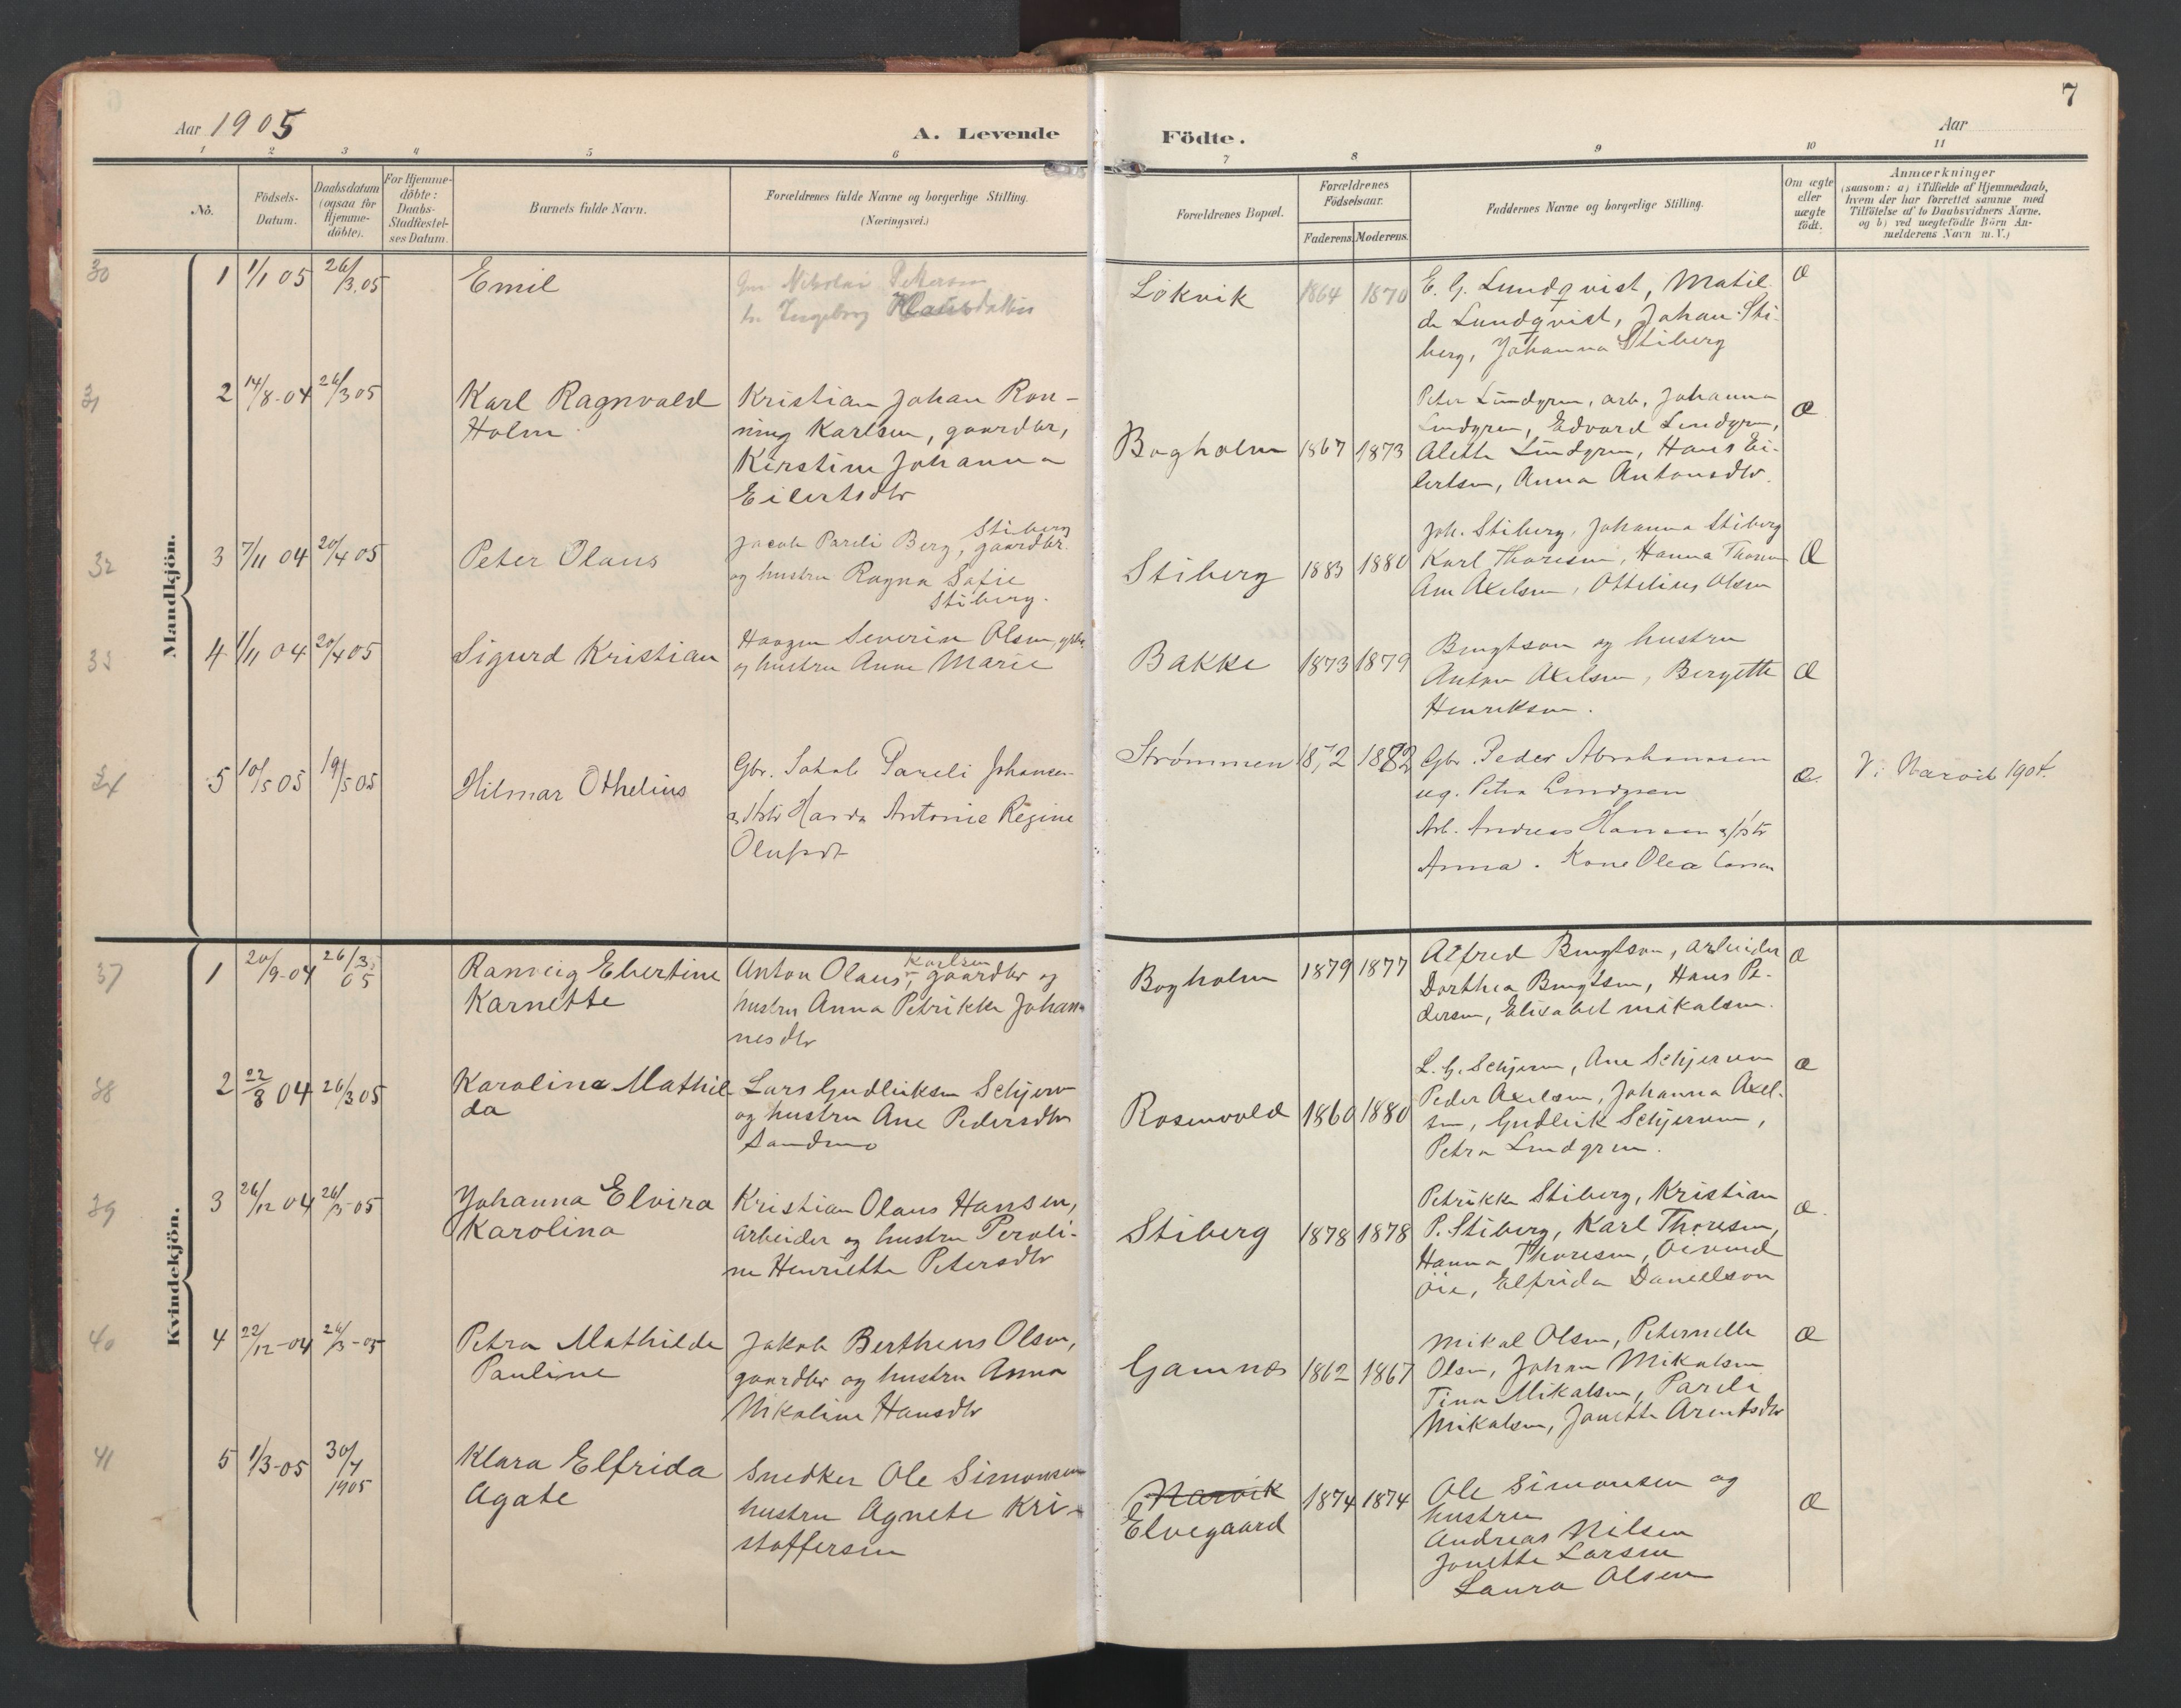 7
Aar 1905
A. Levende Födte.
Aar
1 2 3 4 5 6 7 8 9 10 11
No.
Födsels-Datum.
Daabsdatum (ogsaa for Hjemme-döbte).
For Hjemme-döbte: Daabs-Stadfæstel-ses Datum.
Barnets fulde Navn.
Forældrenes fulde Navne og borgerlige Stilling. (Næringsvei.)
Forældrenes Bopæl.
Forældrenes Födselsaar.
Faderens. Moderens.
Faddernes Navne og borgerlige Stilling.
Om ægte eller uægte födt.
Anmærkninger
(saasom: a) i Tilfælde af Hjemmedaab,
hvem der har forrettet samme med
Tilföielse af to Daabsvidners Navne,
og b) ved uægtefödte Börn An-
melderens Navn m. V.)
Mandkjön.
30 1 1/1 05 26/3.05
Emil
Nikolai Petersen
Ingeborg
Lökvik 1864 1870
E. G. Lundqvist, Matil-
da Lundqvist, Johan Sti-
berg, Johanna Stiberg
Æ
31 2 14/8-04 26/3 05
Karl Ragnvald
Holm
Kristian Johan Ron-
ning Karlsen, gaardbr,
Kirstine Johanna
Eilertsdtr
Bogholm 1867 1873
Peter Lindgren, arb, Johanna
Lindgren, Edvard Lindgren,
Alette Lindgren, Hans Ei-
lertsen, Anna Antonsdtr.
Æ
32 3 7/11 04 20/4 05
Peter Olaus
Stiberg
Jacob Pareli Berg, gaardbr.
og hustru Ragna Sofie
Stiberg.
Stiberg 1883 1880
Joh. Stiberg, Johanna Stiberg
Karl Thoresen, Hanna
Axelsen, Ottelius Olsen
Æ
33 4 1/11 04 20/4 05
Sigurd Kristian
Haagen Severin Olsen,
og hustru Anne Marie
Bakke 1873 1879
Bengtson og hustru
Anton Axelsen, Bergette
Henriksen.
Æ
34 5 10/5 05 19/5 05
Hilmar Othelius
Gbr. Jakob Pareli Johansen
Antonie Regine
Strømmen 1872 1882
Gbr. Peder Abrahamsen
ug. Petra Lindgren
Arb. Andreas Hansen
Anna. Kone Olea
Æ.
1904.
Kvindekjön.
37 1 20/9-04 26/3 05
Ranveig Ebertine
Karnette
Karlsen
Anton Olaus, gaardbr og
hustru Anna Petrikke Johan-
nesdtr
Bogholm 1879 1877
Alfred Bengtson, arbeider
Dorthea Bengtsen, Hans Pe-
dersen, Elisabet Mikalsen.
Æ
38 2 22/8 04 26/3 05
Karolina Mathil
da
Lars Gudleiksen Schjerv
og hustru Ane Pedersdtr
Sandmo
Rosenvold 1860 1880
L. G. Schjerven, Ane Schjerven
Peder Axelsen, Johanna Axel-
sen, Gudleik Schjerven,
Petra Lindgren.
Æ
39 3 26/12 04 26/3-05
Johanna Elvira
Karolina
Kristian Olaus Hansen,
arbeider og hustru Peroli-
ne Henriette Petersdtr
Stiberg 1878 1878
Petrikke Stiberg, Kristian
P. Stiberg, Karl Thoresen,
Hanna Thoresen,
Elfrida Danielson
Æ.
40 4 22/12-04 26/3-05
Petra Mathilde
Pauline
Jakob Bertheus Olsen,
gaardbr og hustru Anna
Nikoline Hansdtr
Gamnes 1862 1867
Mikal Olsen, Peternelle
Olsen, Johan Mikalsen
Tina Mikalsen, Pareli
Mikalsen, Janette Arentsdtr
Æ
41 5 1/3-05 30/4 1905
Klara Elfrida
Agate
Snedker Ole Simonsen
hustru Agnete Kri-
stoffersen
Narvik
Elvegaard 1874 1874
Ole Simonsen og
hustru
Andreas Nilsen
Jonette Larsen
Laura Olsen
Æ